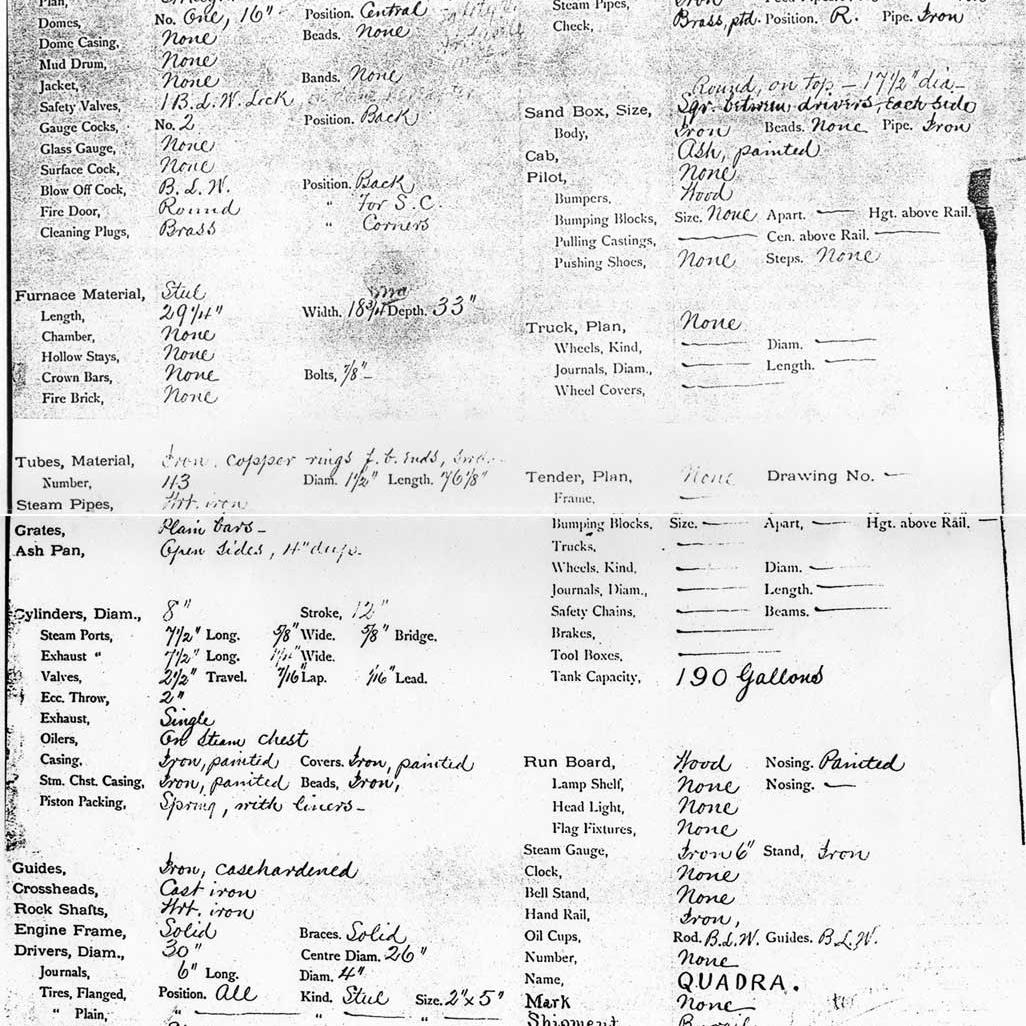 Plan,
Domes, No. One, 16" Position. Central
Dome Casing, None Beads. None
Mud Drum, None
Jacket, None Bands. None
Safety Valves, 1 B.L.W. Lock
Gauge Cocks, No. 2 Position. Back
Glass Gauge, None
Surface Cock, None
Blow Off Cock, B.L.W. Position. Back
Fire Door, Round " for S.C.
Cleaning Plugs, Brass " Corners
Furnace Material, Steel
Length, 29 1/4" Width. 18 3/4 Depth. 33"
Chamber, None
Hollow Stays, None
Crown Bars, None Bolts, 7/8"
Fire Brick, None
Tubes, Material, Iron, copper rings f.b. ends,
Number, 43 Diam. 1 1/2" Length. 76 1/8"
Steam Pipes, Wrt. iron
Grates, Plain bars–
Ash Pan, Open sides, 4" deep.
Cylinders, Diam., 8" Stroke, 12"
Steam Ports, 7 1/2" Long. 5/8" Wide. 5/8" Bridge.
Exhaust " 7 1/2" Long. 1 1/4" Wide.
Valves, 2 1/2" Travel. 7/16" Lap. 1/16" Lead.
Ecc. Throw, 2"
Exhaust, Single
Oilers, On steam chest
Casing, Iron, painted Covers. Iron, painted
Stm. Chst. Casing, Iron, painted Beads, Iron,
Piston Packing, Spring, with liners–
Guides, Iron, casehardened
Crossheads, Cast iron
Rock Shafts, Wrt. iron
Engine Frame, Solid Braces. Solid
Drivers, Diam., 30" Centre Diam. 26"
Journals, 6" Long. Diam. 4"
Tires, Flanged, Position. All Kind. Steel Size. 2" x 5"
" Plain, " — " — "
Steam Pipes, Iron
Check, Brass, ptd. Position. R. Pipe. Iron
Round, on top – 17 1/2" dia–
Sand Box, Size, Sqr. between drivers, each side
Body, Iron Beads. None Pipe. Iron
Cab, Ash, painted
Pilot, None
Bumpers, Wood
Bumping Blocks, Size. None Apart. — Hgt. above Rail.
Pulling Castings, — Cen. above Rail. —
Pushing Shoes, None Steps. None
Truck, Plan, None
Wheels, Kind, — Diam. —
Journals, Diam., — Length. —
Wheel Covers, —
Tender, Plan, None Drawing No. —
Frame, —
Bumping Blocks, Size. — Apart, — Hgt. above Rail. —
Trucks, —
Wheels, Kind, — Diam. —
Journals, Diam., — Length. —
Safety Chains, — Beams. —
Brakes, —
Tool Boxes, —
Tank Capacity, 190 Gallons
Run Board, Wood Nosing. Painted
Lamp Shelf, None Nosing. —
Head Light, None
Flag Fixtures, None
Steam Gauge, Iron 6" Stand, Iron
Clock, None
Bell Stand, None
Hand Rail, Iron,
Oil Cups, Rod. B.L.W. Guides. B.L.W.
Number, None
Name, QUADRA.
Mark None
Shipment